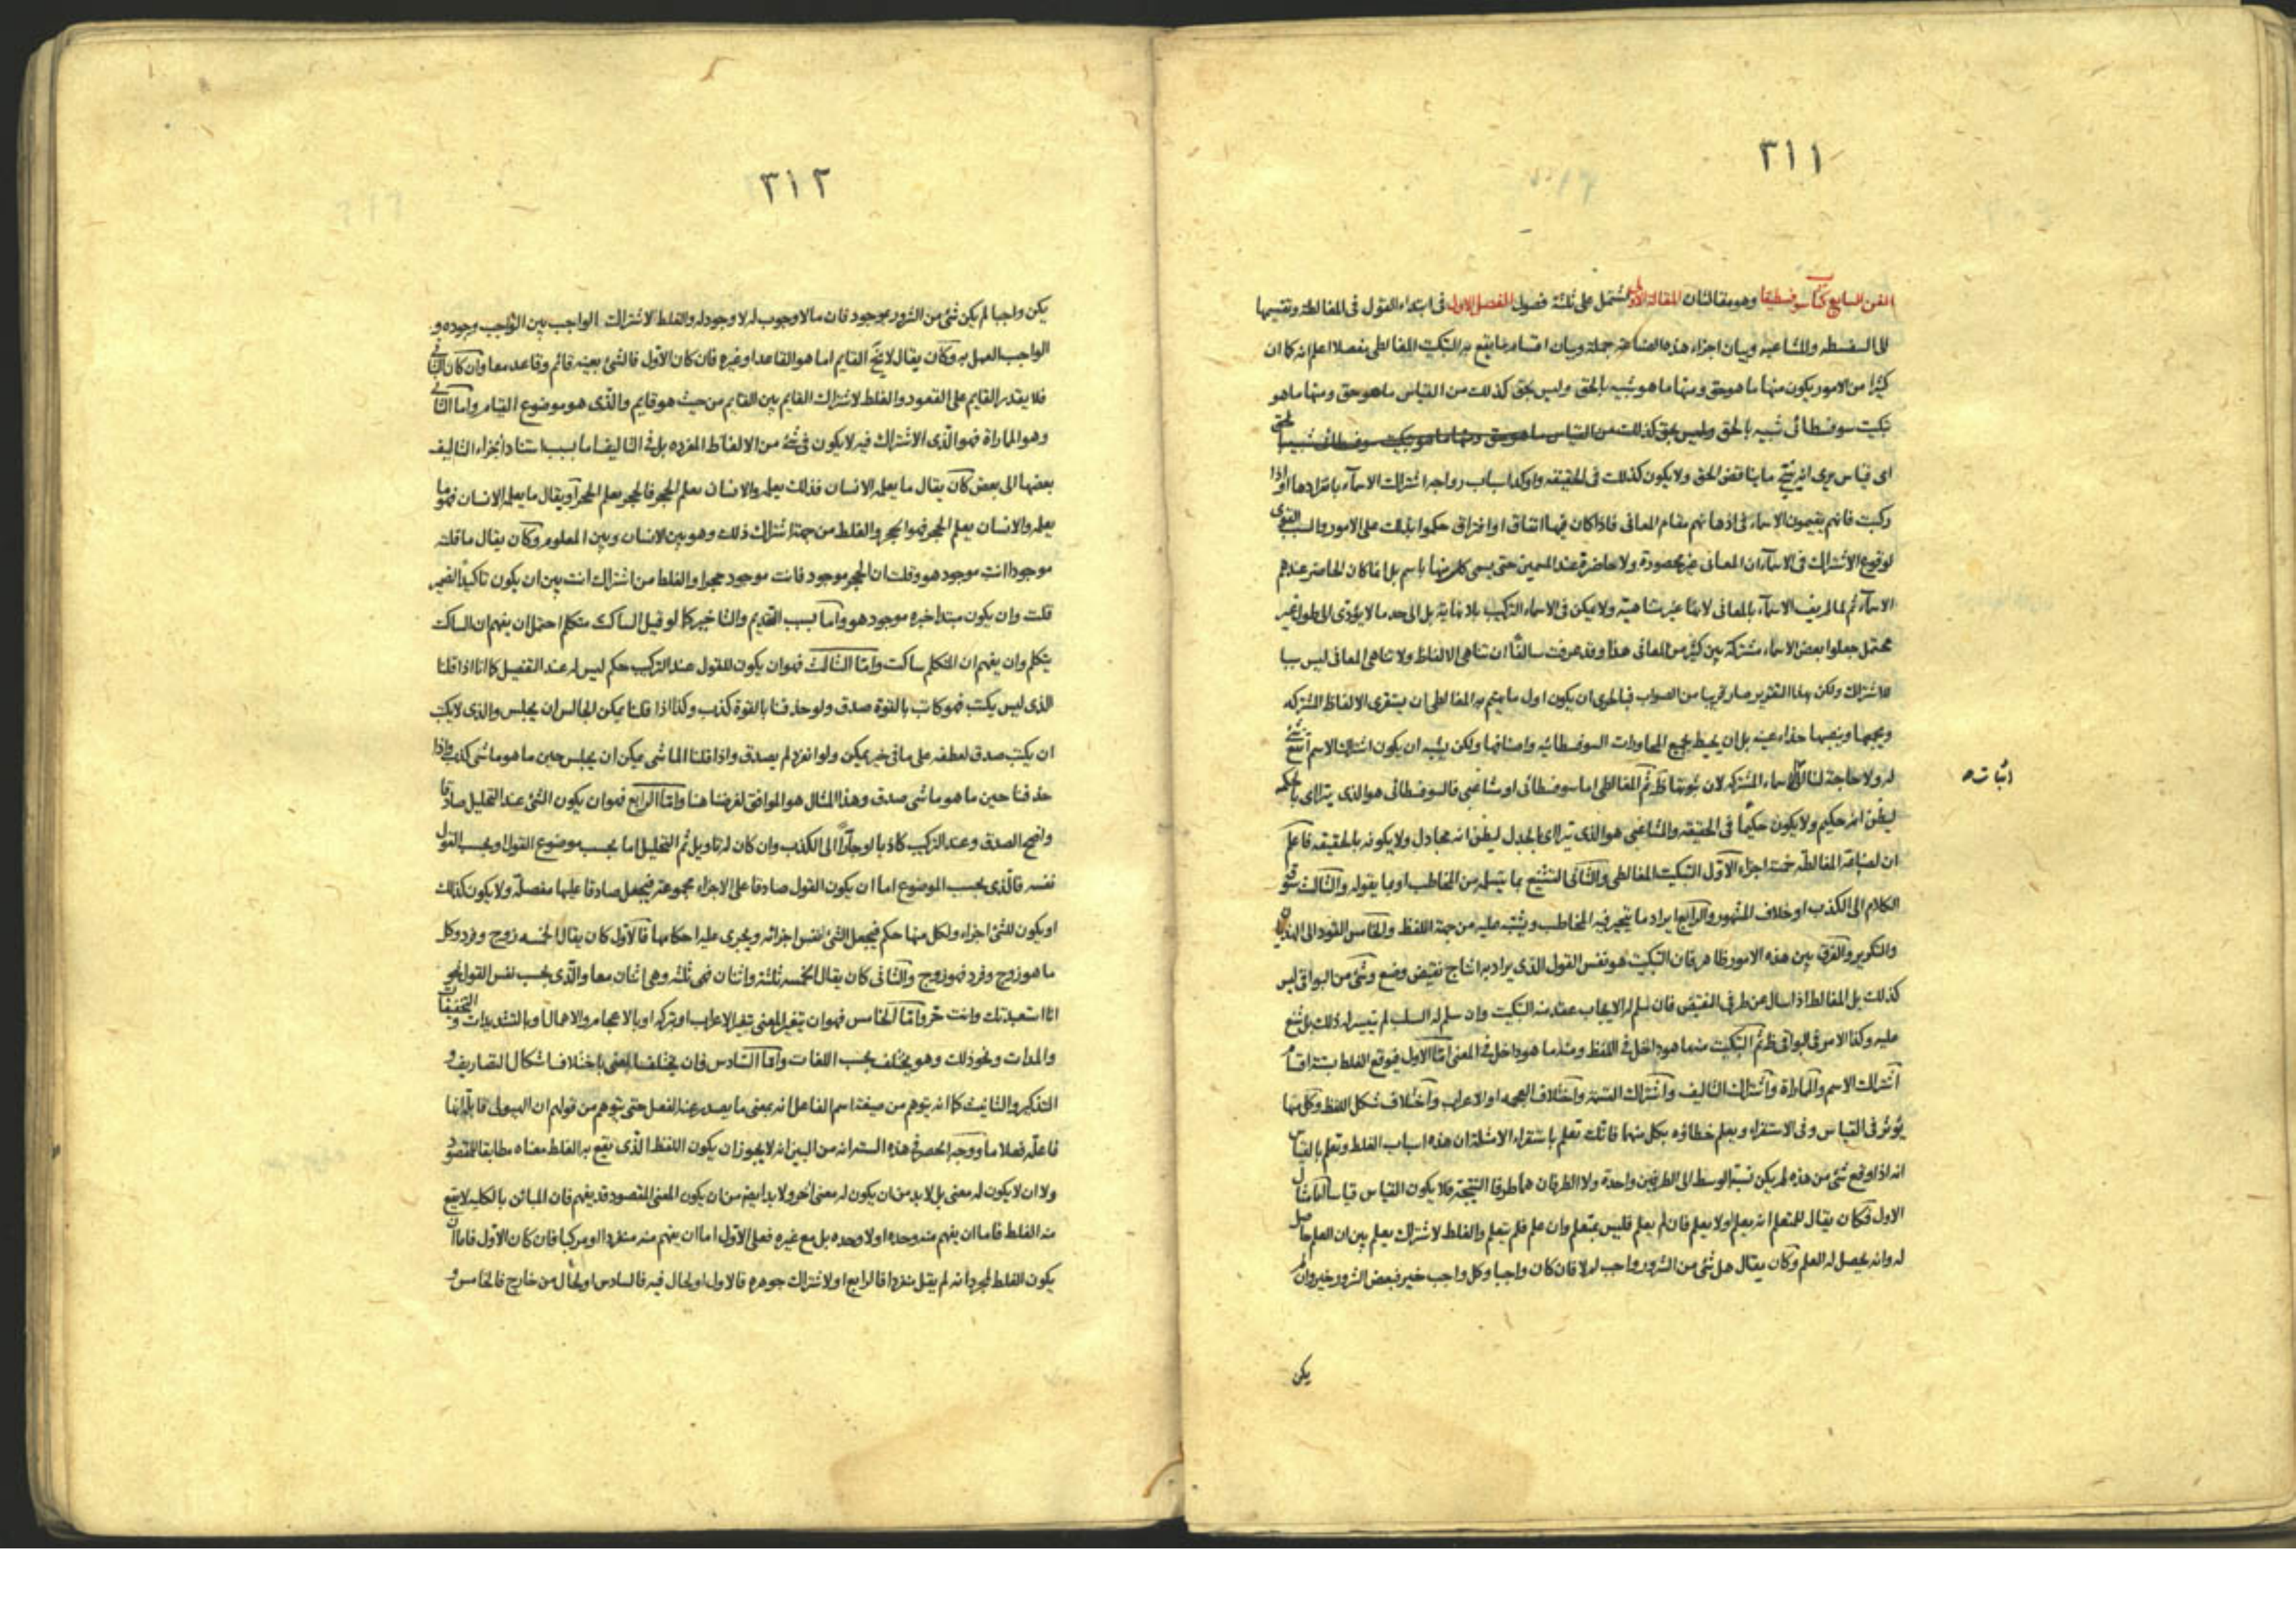 ٣١١
الفن السابع كتاب سوفسطيقا وهو مقالتان المقالة الاولى تشتمل على ثلثة فصول الفصل الاول فى ابتداء القول فى المغالطة وتقسيمها
الى السفسطه والمشاغبه وبيان اجزاء هذه الصناعة جملة وبيان اقسام ما يقع به التبكيت المغالطى مفصلا اعلم انه كما ان
كثيرا من الامور يكون منها ما هو حق ومنها ما هو شبيه بالحق وليس بحق كذلك من القياس ما هو حق ومنها ما هو
تبكيت سوفسطائى شبيه بالحق وليس بحق كذلك من القياس ما هو حق ومنها ما هو تبكيت سوفسطائى شبيه
اى قياس يرى انه ينتج ما يناقض الحق ولا يكون كذلك فى الحقيقه واوكد اسباب رواجه اشتراك الاسماء بانفرادها او اذا
ركبت فانهم يقيمون الاسماء فى اذهانهم مقام المعانى فاذا كان فيها اتفاق او افتراق حكموا بذلك على الامور والسبب القوى
لوقوع الاشتراك فى الاسماء ان المعانى غير محصورة ولا حاضرة عند المسمين حتى يسمى كل منها باسم بل انما كان الحاضر عندهم
الاسماء ثم لما لم يف الاسماء بالمعانى لانها غير متناهية ولا يمكن فى الاسماء التركيب بلا نهاية بل الى حد ما لا يؤدى الى طول غير
محتمل جعلوا بعض الاسماء مشتركة بين كثير من المعانى هذا وقد عرفت سالفا ان تناهى الالفاظ ولا تناهى المعانى ليس سببا
للاشتراك ولكن بهذا التقرير صار قريبا من الصواب فبالحرى ان يكون اول ما يهتم به المغالطى ان يستقرى الالفاظ المشتركه
ويجمعها وينصبها حذاء عينه بل ان يحيط بجميع المحاورات السوفسطائيه واصنافها ولكن يشبه ان يكون اشتراك الاسم انفع شئ
له ولا حاجة لنا الى الاسماء المشتركه لان ثبوتها ظ ثم المغالطى اما سوفسطائى او مشاغبى فالسوفسطائى هو الذى يترااى بالحكمه
اثبات صح
ليظن انه حكيم ولا يكون حكيما فى الحقيقه والمشاغبى هو الذى يترااى بالجدل ليظن انه مجادل ولا يكون به بالحقيقه فاعلم
ان لصناعة المغالطه خمسة اجزاء الاول التبكيت المغالطى والثانى التشنيع بما يتسلمه من المخاطب او بما يقوله والثالث سوق
الكلام الى الكذب او خلاف المشهور والرابع ايراد ما يتحير فيه المخاطب ويشتبه عليه من جهة اللفظ والخامس القود الى الهذيان
والتكرير والفرق بين هذه الامور ظاهر فان التبكيت هو نفس القول الذى يراد به انتاج نقيض وضع وشئ من البواقى ليس
كذلك بل المغالط اذا سال عن طرفى النقيض فان سلم له الايجاب عقد منه التبكيت وان سلم له السلب لم تيسر له ذلك بل شنع
عليه وكذا الامر فى البواقى ظ ثم التبكيت منه ما هو داخل فى اللفظ ومنه ما هو داخل فى المعنى اما الاول فيوقع الغلط بستة اقسام
اشتراك الاسم والمماراة واشتراك التاليف واشتراك القسمة واختلاف العجمه او الاعراب واختلاف شكل اللفظ وكل منها
يؤثر فى القياس وفى الاستقراء ويعلم خطاؤه بكل منهما فانك تعلم باستقراء الامثلة ان هذه اسباب الغلط وتعلم بالقياس
انه اذا وقع شئ من هذه لم يكن نسبة الوسط الى الطرفين واحدة ولا الطرفان هما طرفا النتيجة فلا يكون القياس قياسا مثال
الاول فكان يقال للمتعلم انه يعلم او لا يعلم فان لم يعلم فليس بمتعلم وان علم فلم يتعلم والغلط لاشتراك يعلم بين ان العلم حاصل
له وانه يحصل له العلم وكان يقال هل شئ من الشرور واجب او لا فان كان واجبا وكل واجب خير فبعض الشرور خير وان لم
يكن
٣١٢
يكن واجبا لم يكن شئ من الشرور بموجود فان ما لا وجوب له لا وجود له والغلط لاشتراك الواجب بين الواجب وجوده و
الواجب العمل به وكان يقال لا يخ القايم اما هو القاعد او غيره فان كان الاول فالشئ بعينه قائم وقاعد معا وان كان الثانى
فلا يقدر القايم على القعود والغلط لاشتراك القايم بين القايم من حيث هو قايم والذى هو موضوع القيام واما الثانى
وهو المماراة فهو الذى الاشتراك فيه لا يكون فى شئ من الالفاظ المفرده بل فى التاليف اما بسبب استناد اجزاء التاليف
بعضها الى بعض كان يقال ما يعلمه الانسان فذلك يعلمه والانسان يعلم الحجر فالحجر يعلم الحجر او يقال ما يعلم الانسان فهو ما
يعلمه والانسان يعلم الحجر فهو الحجر والغلط من جهة اشتراك ذلك وهو بين الانسان وبين المعلوم وكان يقال ما قلته
موجودا انت موجود هو وقلت ان الحجر موجود فانت موجود حجرا والغلط من اشتراك انت بين ان يكون تاكيدا لضمير
قلت وان يكون مبتدا خبره موجود هو واما بسبب التقديم والتاخير كما لو قيل الساكت متكلم احتمل ان يفهم ان الساكت
يتكلم وان يفهم ان المتكلم ساكت واما الثالث فهو ان يكون للقول عند التركيب حكم ليس له عند التفصيل كما انا اذا قلنا
الذى ليس يكتب فهو كاتب بالقوة صدق ولو حذفنا بالقوة كذب وكذا اذا قلنا يمكن الجالس ان يجلس والذى لا يكتب
ان يكتب صدق لعطفه على ما فى خبر يمكن ولو انفرد لم يصدق واذا قلنا الماشى يمكن ان يجلس حين ما هو ماشى كذب واذا
حذفنا حين ما هو ماشى صدق وهذا المثال هو الموافق لغرضنا هنا واما الرابع فهو ان يكون الشئ عند التحليل صادقا
واضح الصدق وعند التركيب كاذبا او جارا الى الكذب وان كان له تاويل ثم التحليل اما بحسب موضوع القول او بحسب القول
نفسه فالذى بحسب الموضوع اما ان يكون القول صادقا على الاجزاء مجموعة فيجعل صادقا عليها مفصلة ولا يكون كذلك
او يكون للشئ اجزاء ولكل منها حكم فيجعل الشئ نفس اجزائه ويجرى عليه احكامها فالاول كان يقال الخمسه زوج وفرد وكل
ما هو زوج وفرد فهو زوج والثانى كان يقال الخمسه ثلثة واثنان فهى ثلثه وهى اثنان معا والذى بحسب نفس القول نحو
انا استعبدتك وانت حر واما الخامس فهو ان يتغير المعنى بتغير الاعراب او بتركه او بالاعجام والاهمال او بالتشديدات والتخفيفات
والمدات ونحو ذلك وهو يختلف بحسب اللغات واما السادس فان يختلف المعنى باختلاف اشكال التصاريف و
التذكير والتانيث كما انه يتوهم من صيغة اسم الفاعل انه بمعنى ما يصدر عنه الفعل حتى يتوهم من قولهم ان الهيولى قابلة انها
فاعلة فعلا ما ووجه الحصر فى هذه الستة انه من البين انه لا يجوز ان يكون اللفظ الذى يقع به الغلط معناه مطابقا للمقصود
ولا ان لا يكون له معنى بل لا بد من ان يكون له معنى اخر ولا بد ايضا من ان يكون المعنى المقصود قد يفهم فان المباين بالكليه لا يقع
منه الغلط فاما ان يفهم منه وحده او لا وحده بل مع غيره فعلى الاول اما ان يفهم منه منفردا او مركبا فان كان الاول فاما ان
يكون الغلط لمجرد انه لم يقل منفردا فالرابع او لاشتراك جوهره فالاول او لحال فيه فالسادس او لحال من خارج فالخامس و